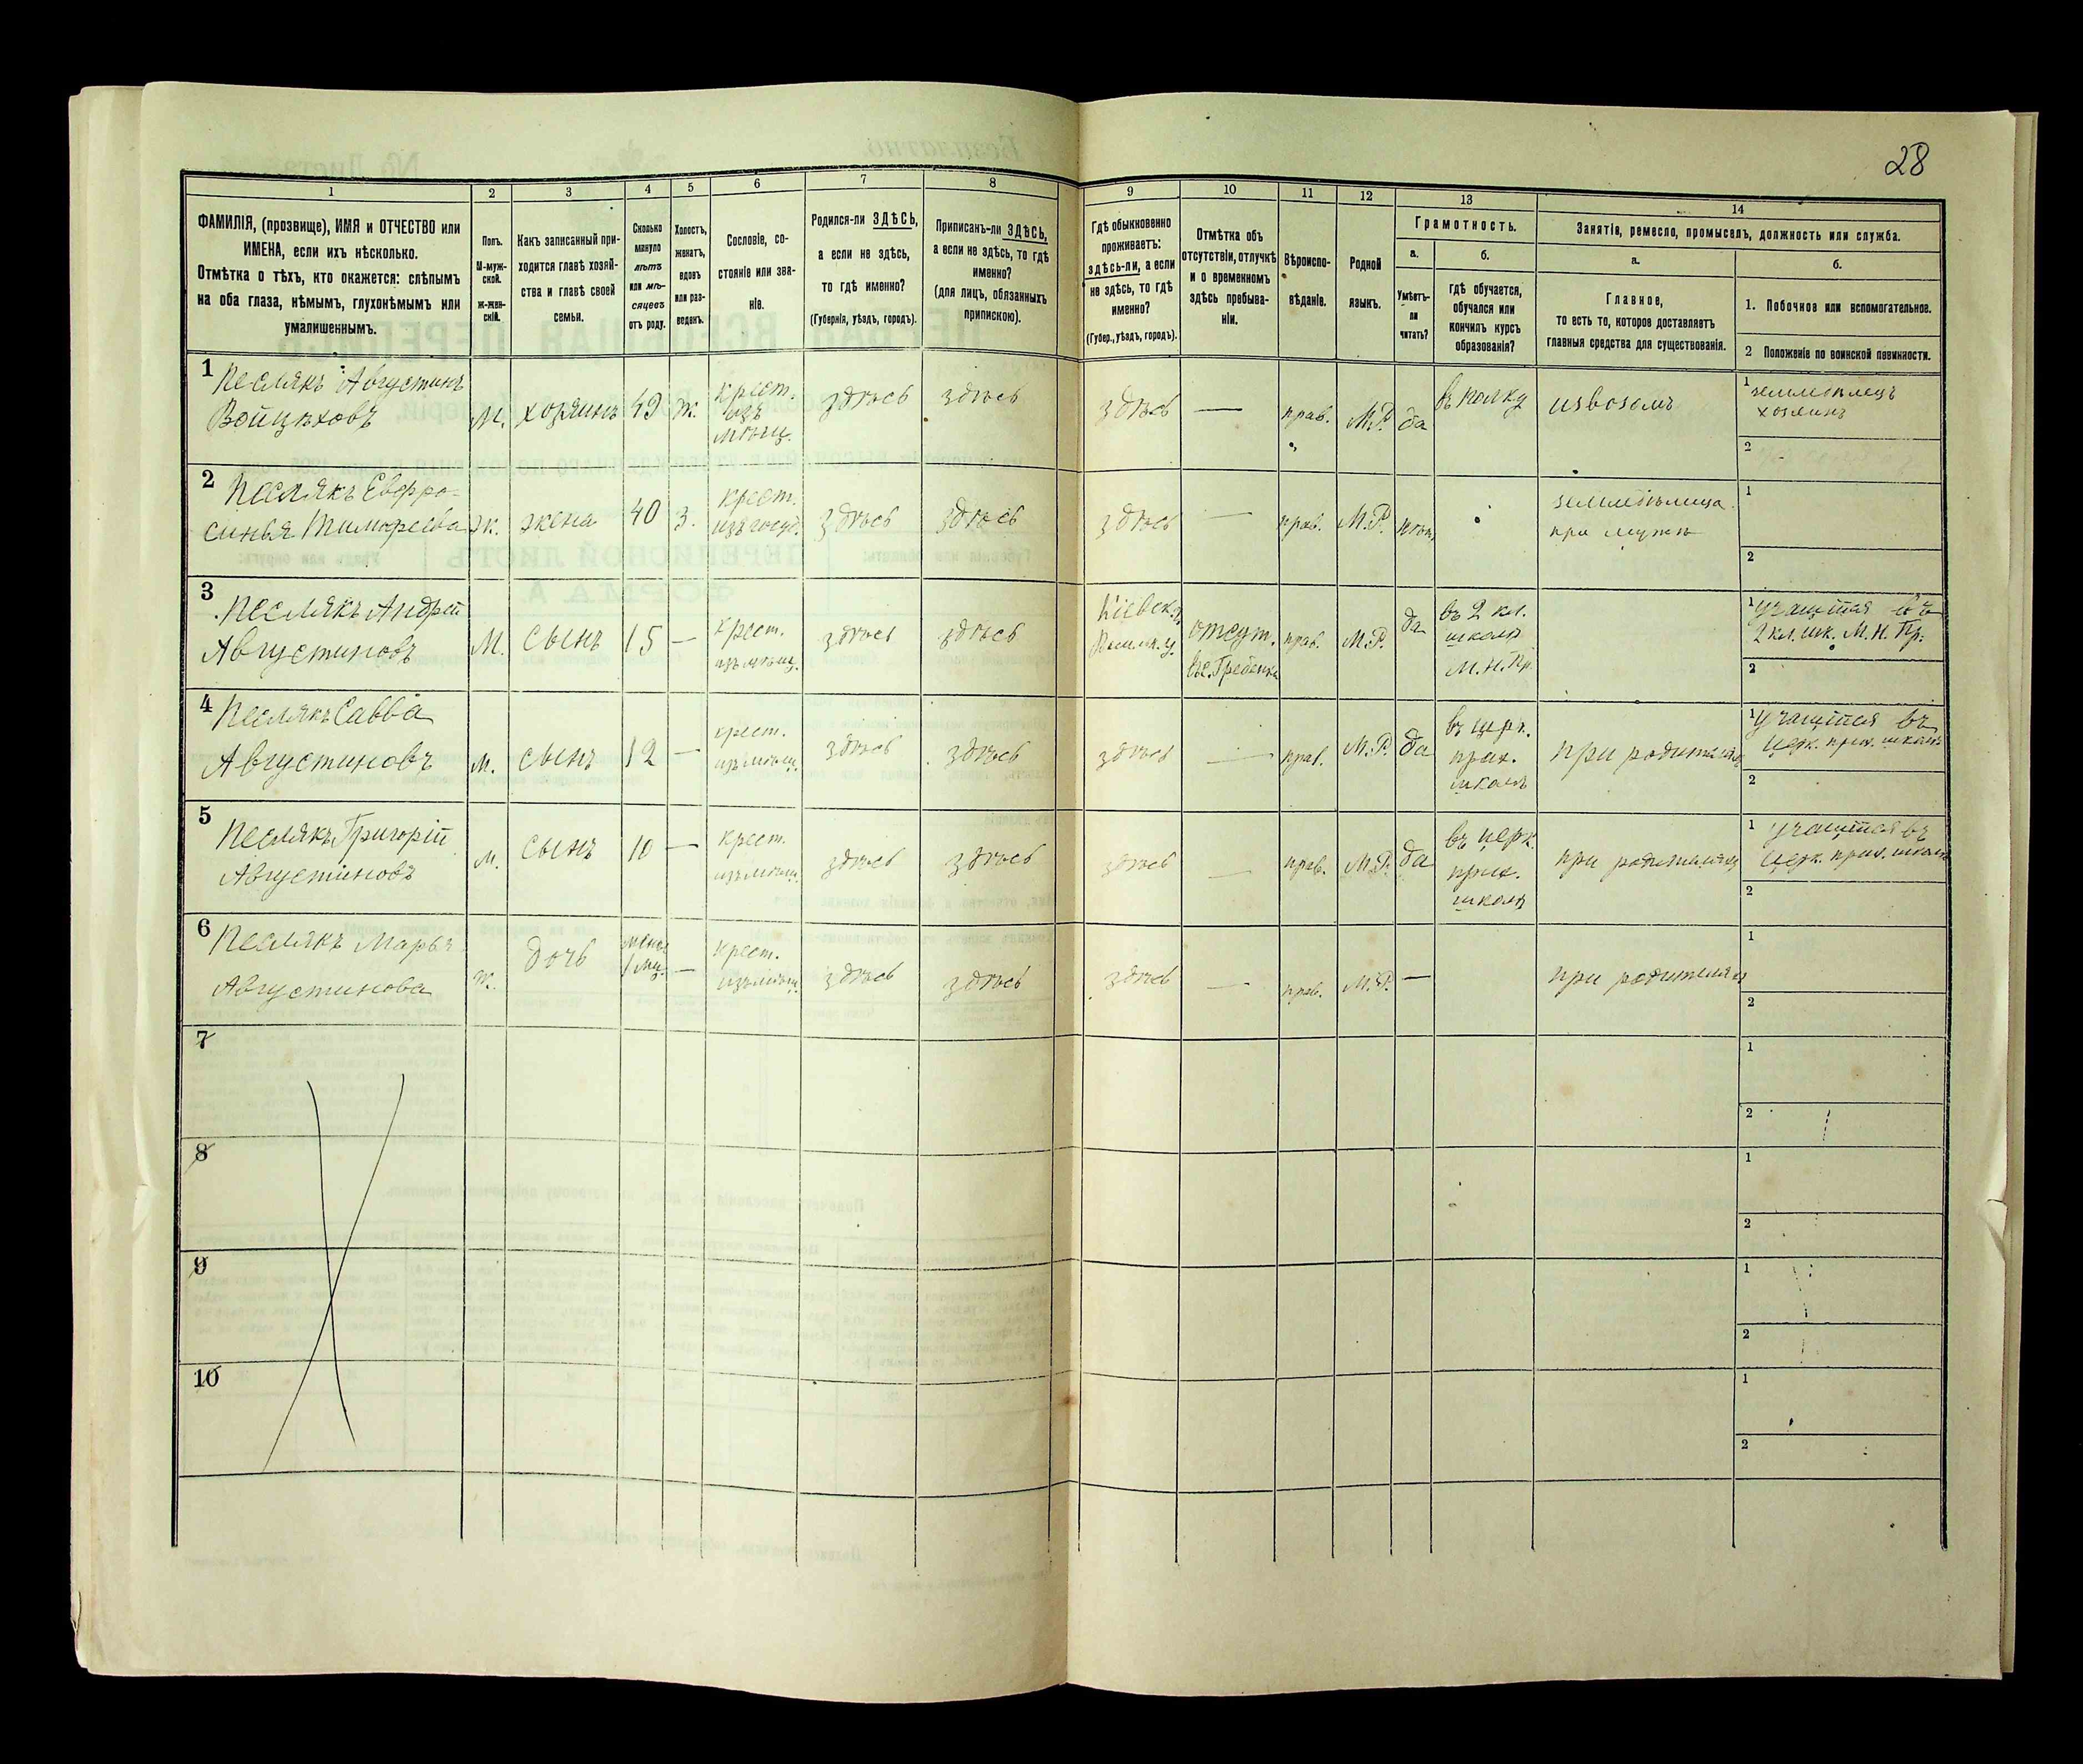 28
1
2
3
4
5
6
7
8
9
10
11
12
13
14
ФАМИЛІЯ, (прозвище), ИМЯ и ОТЧЕСТВО или
ИМЕНА, если ихъ нѣсколько.
Отмѣтка о тѣхъ, кто окажется: слѣпымъ
на оба глаза, нѣмымъ, глухонѣмымъ или
умалишеннымъ.
Полъ.
М-муж-
ской.
Ж-жен-
скій.
Какъ записанный при-
ходится главѣ хозяй-
ства и главѣ своей
семьи.
Сколько
минуло
лѣтъ
или мѣ-
сяцевъ
отъ роду.
Холостъ,
женатъ,
вдовъ
или раз-
веденъ.
Сословіе, со-
стояніе или зва-
ніе.
Родился-ли ЗДѢСЬ,
а если не здѣсь,
то гдѣ именно?
(Губернія, уѣздъ, городъ).
Приписанъ-ли ЗДѢСЬ,
а если не здѣсь, то гдѣ
именно?
(для лицъ, обязанныхъ
припискою).
Гдѣ обыкновенно
проживаетъ:
здѣсь-ли, а если
не здѣсь, то гдѣ
именно?
(Губер., уѣздъ, городъ).
Отмѣтка объ
отсутствіи, отлучкѣ
и о временномъ
здѣсь пребыва-
ніи.
Вѣроиспо-
вѣданіе.
Родной
языкъ.
Грамотность.
а.
Умѣетъ-
ли
читать?
б.
гдѣ обучается,
обучался или
кончилъ курсъ
образованія?
Занятіе, ремесло, промыселъ, должность или служба.
а.
Главное,
то есть то, которое доставляетъ
главныя средства для существованія.
б.
1. Побочное или вспомогательное.
2 Положеніе по воинской повинности.
1 Песлякъ Августинъ
Войцѣховъ
М. хозяинъ 49 ж. крест.
изъ
мѣщ.
здѣсь здѣсь здѣсь — прав. М.Р. да въ полку извозомъ
1 земледѣлецъ
хозяинъ
2
2 Песлякъ Евфро-
синья Тимофеева
ж. жена 40 з. крест.
изъ госуд.
здѣсь здѣсь здѣсь — прав. М.Р. нѣтъ земледѣлица
при мужѣ
1
2
3 Песлякъ Андрей
Августиновъ
М. сынъ 15 — крест.
изъ мѣщ.
здѣсь здѣсь Кіевск. г.
Васильк. у.
отсут.
въ с. Гребенки
прав. М.Р. да въ 2 кл.
школѣ
М.Н.Пр.
1 учащійся въ
2 кл. шк. М.Н.Пр.
2
4 Песлякъ Савва
Августиновъ
м. сынъ 12 — крест.
изъ мѣщ.
здѣсь здѣсь здѣсь — прав. М.Р. да въ церк.
прих.
школѣ
при родителяхъ
1 учащійся въ
церк. прих. школѣ
2
5 Песлякъ Григорій
Августиновъ
м. сынъ 10 — крест.
изъ мѣщ.
здѣсь здѣсь здѣсь — прав. М.Р. да въ церк.
прих.
школѣ
при родителяхъ
1 учащійся въ
церк. прих. школѣ
2
6 Песлякъ Марья
Августинова
ж. дочь менѣе
1 мц.
— крест.
изъ мѣщ.
здѣсь здѣсь здѣсь — прав. М.Р. — при родителяхъ
1
2
7
1
2
8
1
2
9
1
2
10
1
2